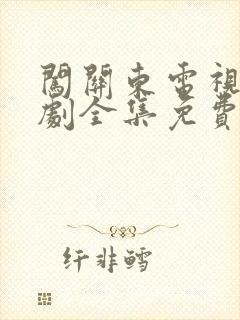 闖關東電視
劇全集免費
纤非鳕